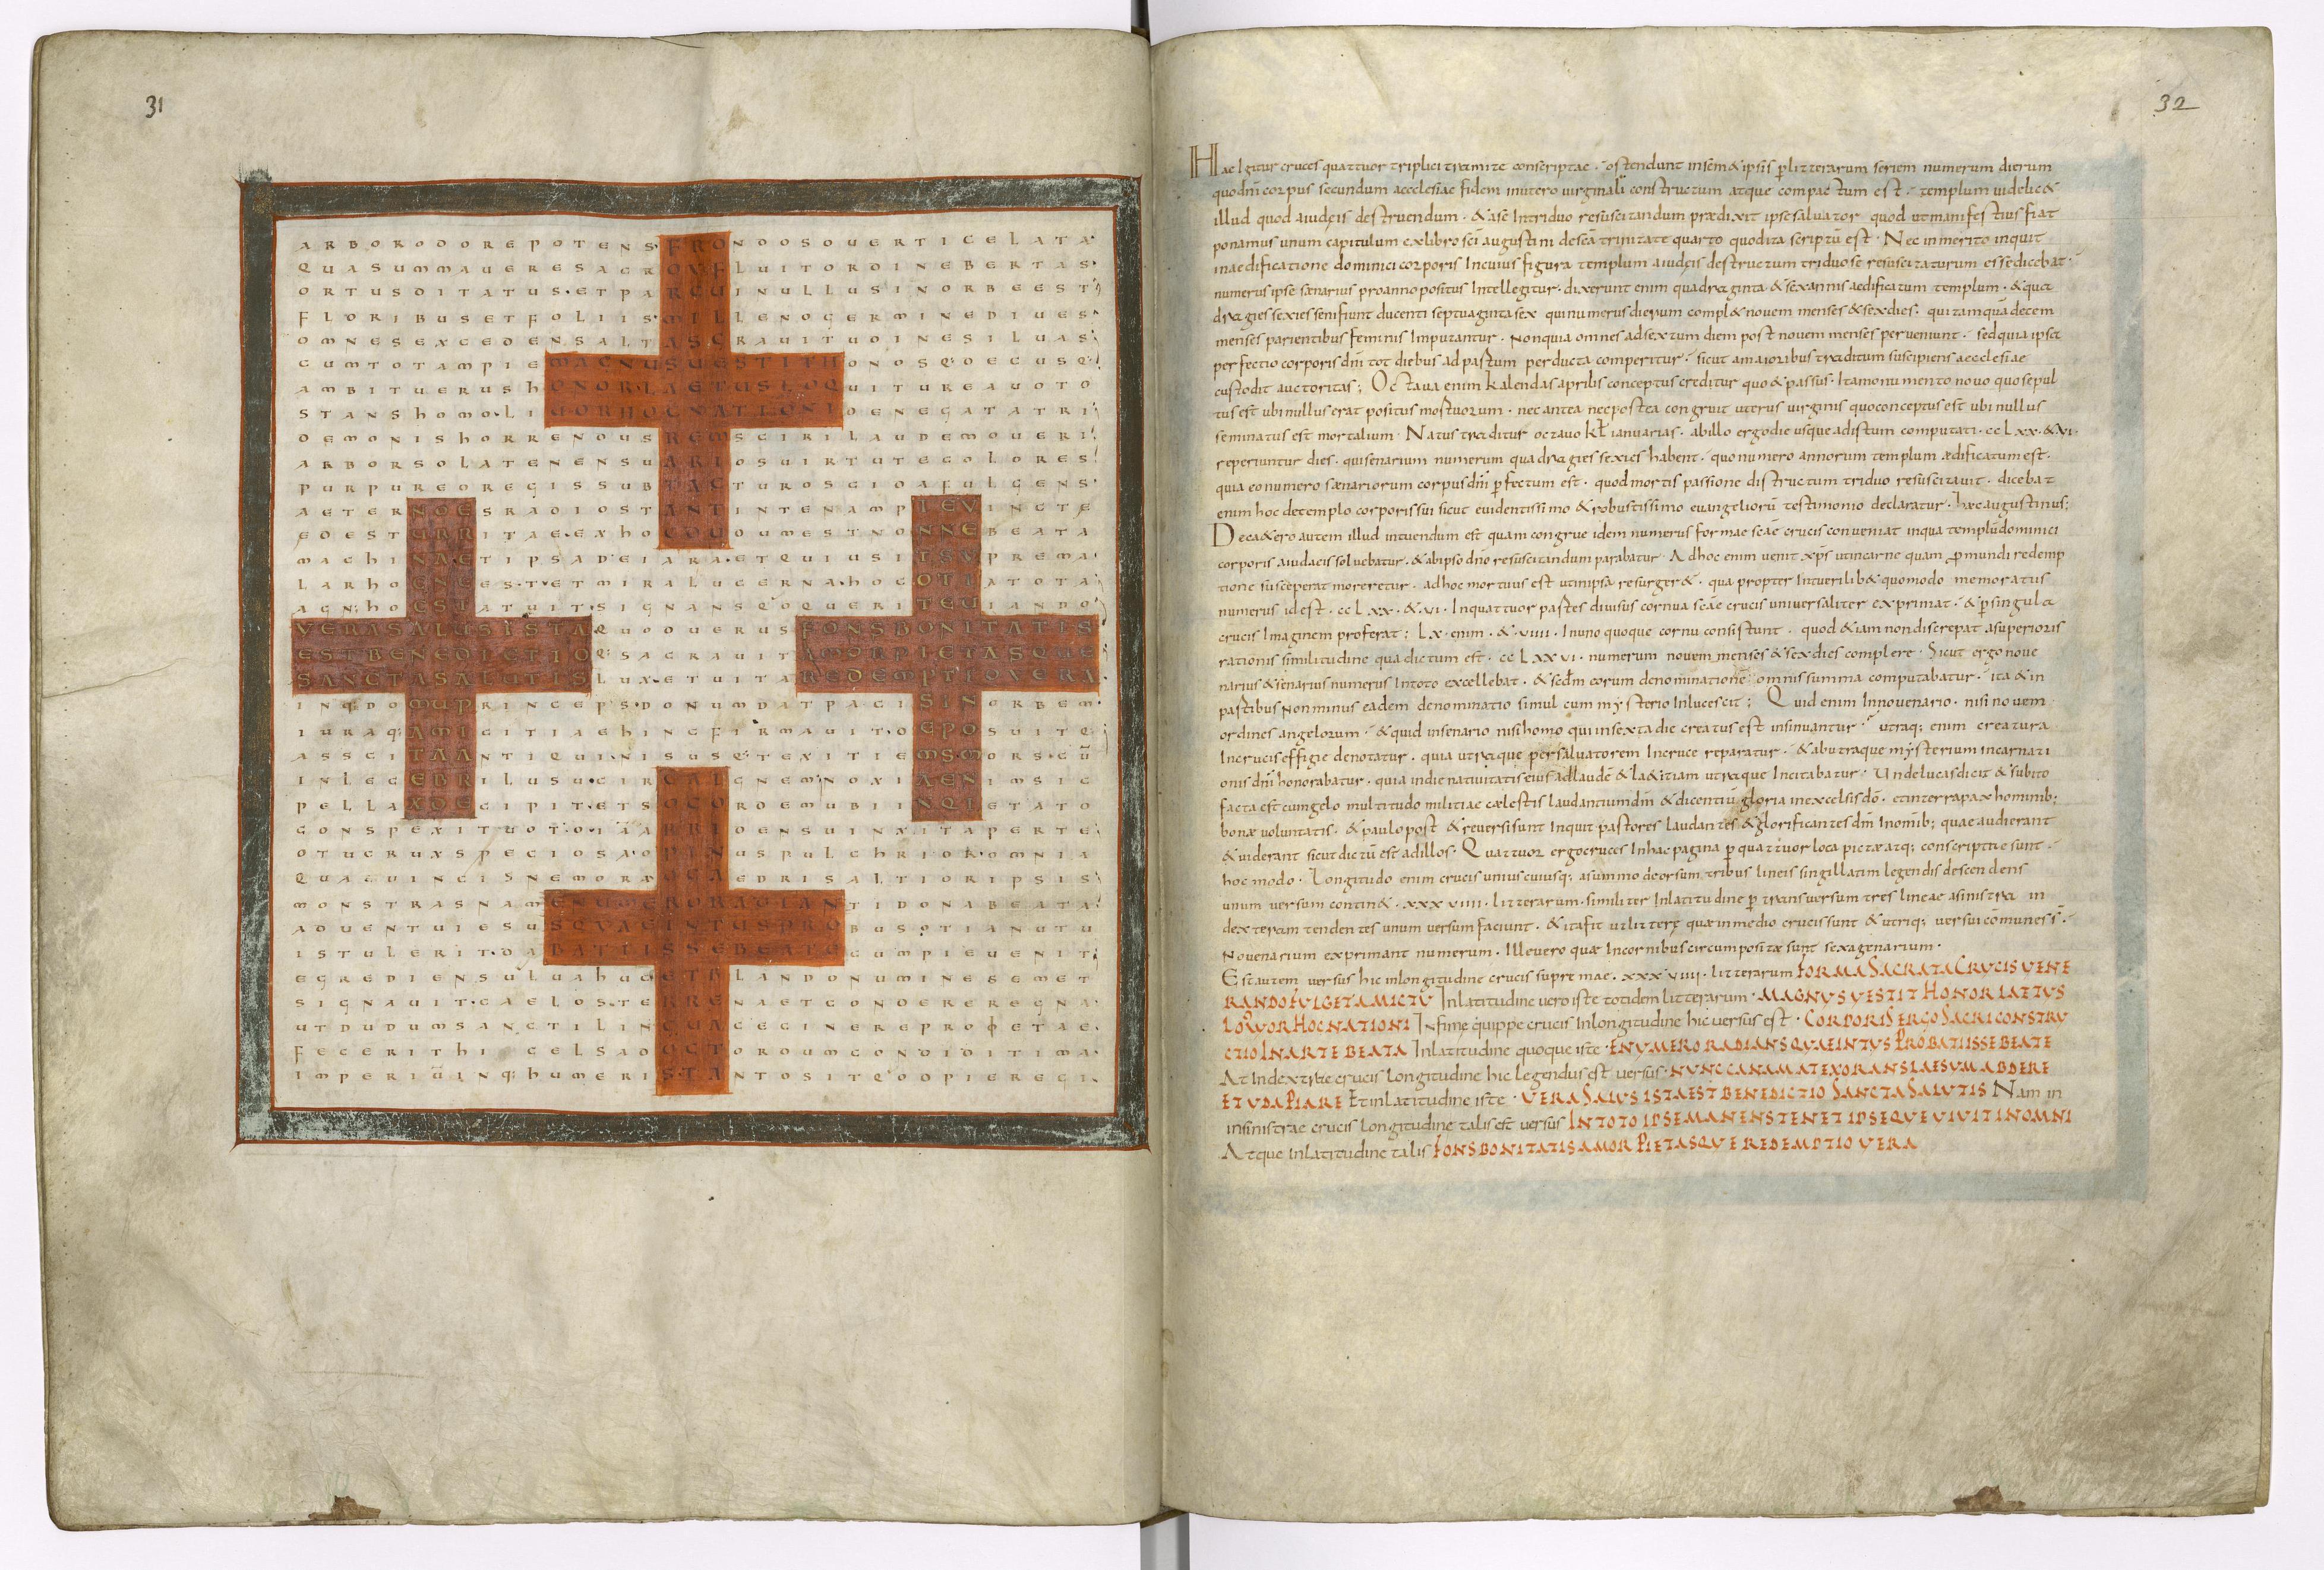 31
ARBORODOREPOTENSFRONDOSOUERTICELATA
QUASUMMAUERESACROVFLUITORDINEBERTAS
ORTUSDITATUS·ETPARCUINULLUSINORBEEST
FLORIBUSETFOLIISMILLENOGERMINEDIUES
OMNESEXCEDENSALTASGRAUITUDINESILUAS
CUMTOTAMPIEMAGNUSUESTITHONOSQ:DECUSQ:
AMBITUERUSHONORLAETUSLOQUITUREAUOTO
STANSHOMO·LIUORHOCNATIONIDENEGATATRI
DEMONISHORRENDUSREMSCIRILAUDEMOUERI
ARBORSOLATENENSUARIOSUIRTUTECOLORES
PURPUREOREGISSUBTACTUROSCIDAFULGENS
AETERNOESRADIOSTANTINTENAMPIEVINCTE
EDESTURRITAE·EXHOCDUDUMESTNONNEBEATA
MACHINAETIPSADEIARA·ETQUIUSITSVPREMA
LARHOCNEES·TVETMIRALUCERNA·HOCOTIATOTA
AGN:HOCSTATUIT·SIGNANSQ:OQUERITEUIANDO
VERASALUSISTAQUODUERUSFONSBONITATIS
ESTBENEDICTIOQ:SACRAUITAMORPIETASQUE
SANCTASALUTISLUXETUITAREDEMPTIOVERA
INQ:DOMUPRINCEPSDONUMDATPACISINORBEM
IURAQ:AMICITIAEHINCFIRMAUIT·DEPOSUITQ:
ASSCITAANTIQUINISUSQ:TEXITIEMSMORS·CŪ
INLEGEBRILUSU·CIRCAIGNEMNOXIAENIMSIC
PELLAXDECIPIT·ETSOCORDEMUBIINQIETATO
CONSPEXITUOTO·IAARRIDENSUINXITAPERTE
OTUCRUXSPECIOSADPINUSPULCHRIOROMNIA
QUAEUINCISNEMORAOCAEDRISALTIORIPSIS
MONSTRASNAMENUMERORADIANTIDONABEATA
ADUENTUIESUSQVAEINTUSPROBUSQ:TIANUTU
ISTULERITDABATIISSEBEATECUMPIEUENIT
EGREDIENSULUAHUCETBLANDONUMINESEMET
SIGNAUIT·CAELOSTERRENAETCONDEREREGNA
UTDUDUMSANCTILINGUACECINEREPROPHETAE
FECERITHICCELSADOCTORDUMCONDIDITIMA
IMPERIŪINQ:HUMERISTANTOSITQ:ODPIEREGI
32
Hae Igitur cruces quattuor triplici tramite conscriptae · ostendunt insem&ipsis p litterarum seriem numerum dierum
quo dnī corpus secundum aecclesiae fidem inutero uirginali constructum atque compactum est · templum uidelic&
illud quod aiudęis destruendum · & ase Intriduo resuscitandum praedixit ipse saluator quod ut manifestius fiat
ponamus unum capitulum ex libro scī augustini de scā trinitate quarto quod ita scriptū est · Nec inmerito inquit
inaedificatione dominici corporis Incuius figura templum aiudęis destructum triduo se resuscitaturum esse dicebat ·
numerus ipse senarius pro anno positus Intellegitur · dixerunt enim quadraginta & sex annis aedificatum templum · & qua
dragies sexies seni fiunt ducenti septuaginta sex qui numerus dierum compl& nouem menses & sex dies · qui tamquā decem
menses parientibus feminis Imputantur · Non quia omnes ad sextum diem post nouem menses perueniunt · sed quia ipsa
perfectio corporis dnī tot diebus ad partum perducta comperitur · sicut a maioribus traditum suscipiens aecclesiae
custodit auctoritas; Octaua enim kalendas aprilis conceptus creditur quo & passus · Ita monumento nouo quo sepul
tus est ubi nullus erat positus mortuorum · nec antea nec postea congruit uterus uirginis quo conceptus est ubi nullus
seminatus est mortalium · Natus traditur octauo kł ianuarias · ab illo ergo die usque ad istum computati · cclxx·&vi·
reperiuntur dies · qui senarium numerum quadragies sexies habent · quo numero annorum templum aedificatum est ·
quia eo numero sænariorum corpus dnī pfectum est · quod mortis passione distructum triduo resuscitauit · dicebat
enim hoc de templo corporis sui sicut euidentissimo & robustissimo euangeliorū testimonio declaratur · haec augustinus;
De cætero autem illud intuendum est quam congrue idem numerus formae scāe crucis conueniat inqua templū dominici
corporis aiudaeis soluebatur · & ab ipso dno resuscitandum parabatur · Ad hoc enim uenit xp̄s ut in carne quam p mundi redemp
tione susceperat moreretur · ad hoc mortuus est ut in ipsa resurger& · qua propter Intueri lib& quomodo memoratus
numerus id est · cclxx·&vi· Inquattuor partes diuisus cornua scāe crucis uniuersaliter exprimat · & p singula
crucis Imaginem proferat; lx·enim·&viiii· Inuno quoque cornu consistunt · quod & iam non discrepat a superioris
rationis similitudine qua dictum est · cclxxvi· numerum nouem menses & sex dies complere · Sicut ergo noue
narius & senarius numerus Intoto excellebat · & sedm̄ eorum denominatione omnis summa computabatur · ita & in
partibus non minus eadem denominatio simul cum mysterio Inlucescit; Quid enim Innouenario · nisi nouem
ordines angelorum · & quid insenario nisi homo qui insexta die creatus est insinuantur · utraq; enim creatura
Incrucis effigie denotatur · quia utraque per saluatorem Incruce reparatur · & ab utraque mysterium incarnati
onis dnī honorabatur · quia indie natiuitatis eius ad laudē & laetitiam utraque Incitabatur · Unde lucas dicit & subito
facta est cum gelo multitudo militiae caelestis laudantium dnī & dicentiū gloria inexcelsis dō · et interra pax hominib;
bonae uoluntatis · & paulo post & reuersi sunt Inquit pastores laudantes & glorificantes dnī Inomīb; quae audierant
& uiderant sicut dictū est ad illos · Quattuor ergo cruces Inhac pagina p quattuor loca pictae atq; conscriptae sunt ·
hoc modo · Longitudo enim crucis unius cuiusq; a summo deorsum tribus lineis singillatim legendis descendens
unum uersum contin& · xxxviiii · litterarum · similiter Inlatitudine p transuersum tres lineae a sinistra in
dexteram tendentes unum uersum faciunt · & ita fit ut litterę quae inmedio crucis sunt & utriq; uersui cōmunes s̄ ·
Nouenarium exprimant numerum · Ille uero quae Incornibus circumpositae sunt sexagenarium ·
Est autem uersus hic inlongitudine crucis supremae · xxxviiii · litterarum FORMA SACRATA CRVCIS VENE
RANDO FVLGET AMICTV Inlatitudine uero iste totidem litterarum · MAGNVS VESTIT HONOR LAETVS
LOQVOR HOC NATIONI Infimę quippe crucis Inlongitudine hic uersus est · CORPORIS ERGO SACRI CONSTRV
CTIO IN ARTE BEATA Inlatitudine quoque iste · ENVMERO RADIANS QVAE INTVS PROBAT IISSE BEATE
At Indextrae crucis longitudine hic legendus est uersus · NVNC CANAM ATEXORANS LAESVM ABDERE
ET VDA PIARE Et inlatitudine iste · VERA SALVS ISTA EST BENEDICTIO SANCTA SALVTIS Nam in
insinistrae crucis longitudine talis est uersus IN TOTO IPSE MANENS TENET IPSEQVE VIVIT IN OMNI
Atque Inlatitudine talis FONS BONITATIS AMOR PIETASQVE REDEMPTIO VERA